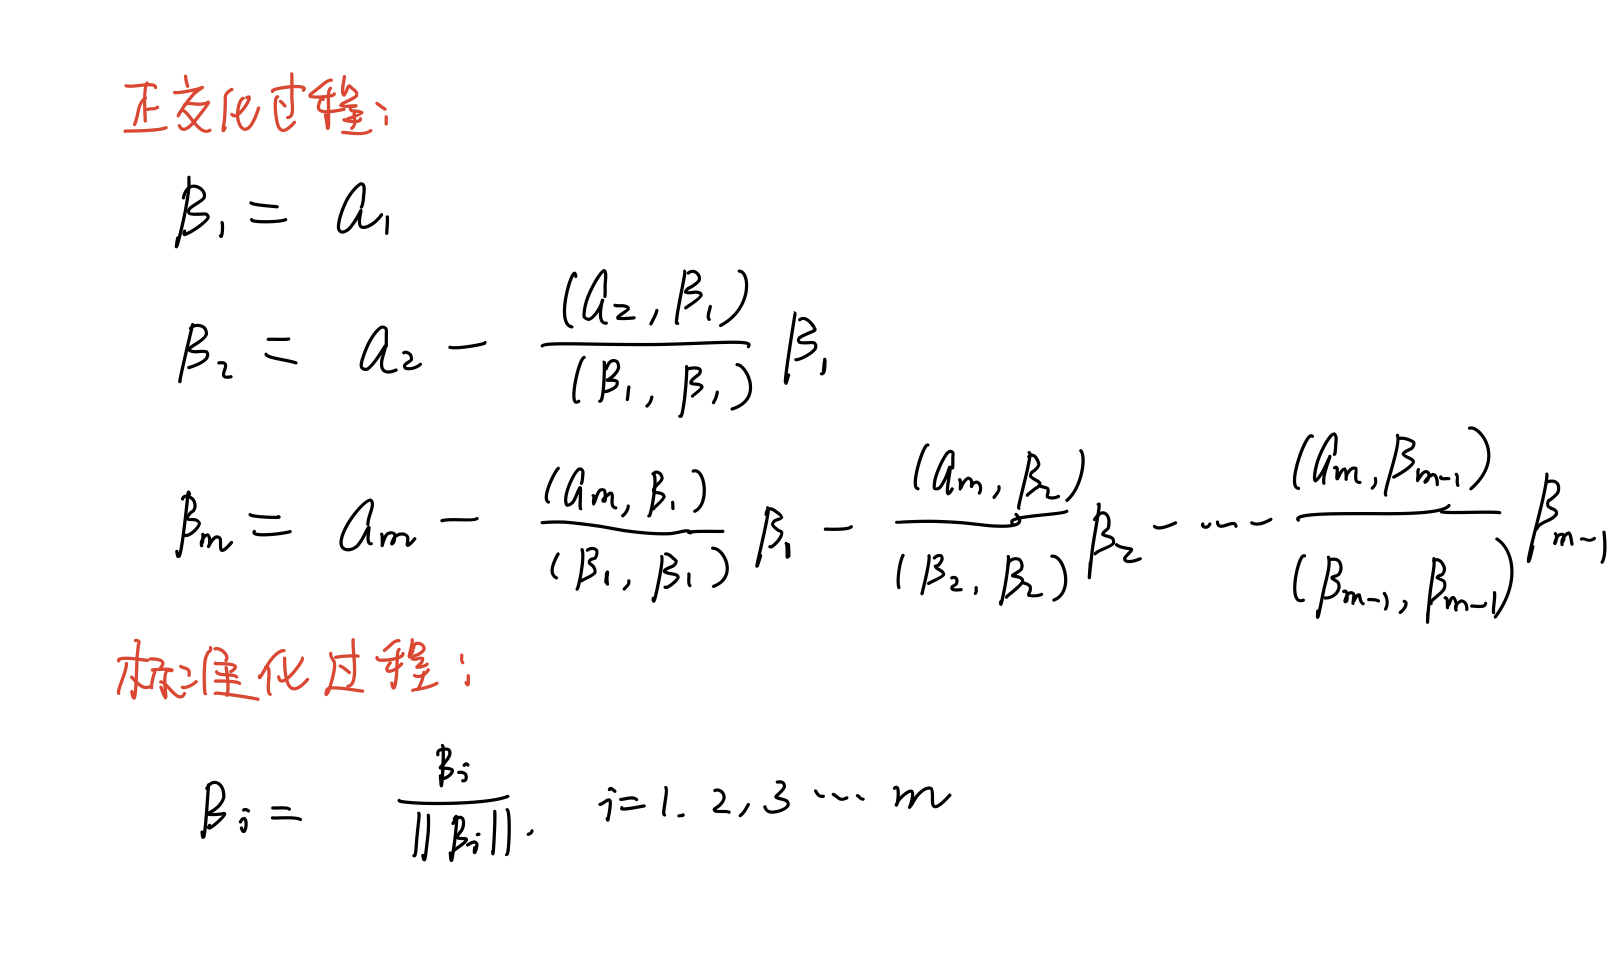 正交化过程:
β₁ = a₁
β₂ = a₂ - \frac{(a₂, β₁)}{(β₁, β₁)} β₁
βₘ = aₘ - \frac{(aₘ, β₁)}{(β₁, β₁)} β₁ - \frac{(aₘ, β₂)}{(β₂, β₂)} β₂ - ... - \frac{(aₘ, βₘ₋₁)}{(βₘ₋₁, βₘ₋₁)} βₘ₋₁
标准化过程:
βᵢ = \frac{βᵢ}{||βᵢ||}. i=1. 2, 3 ... m